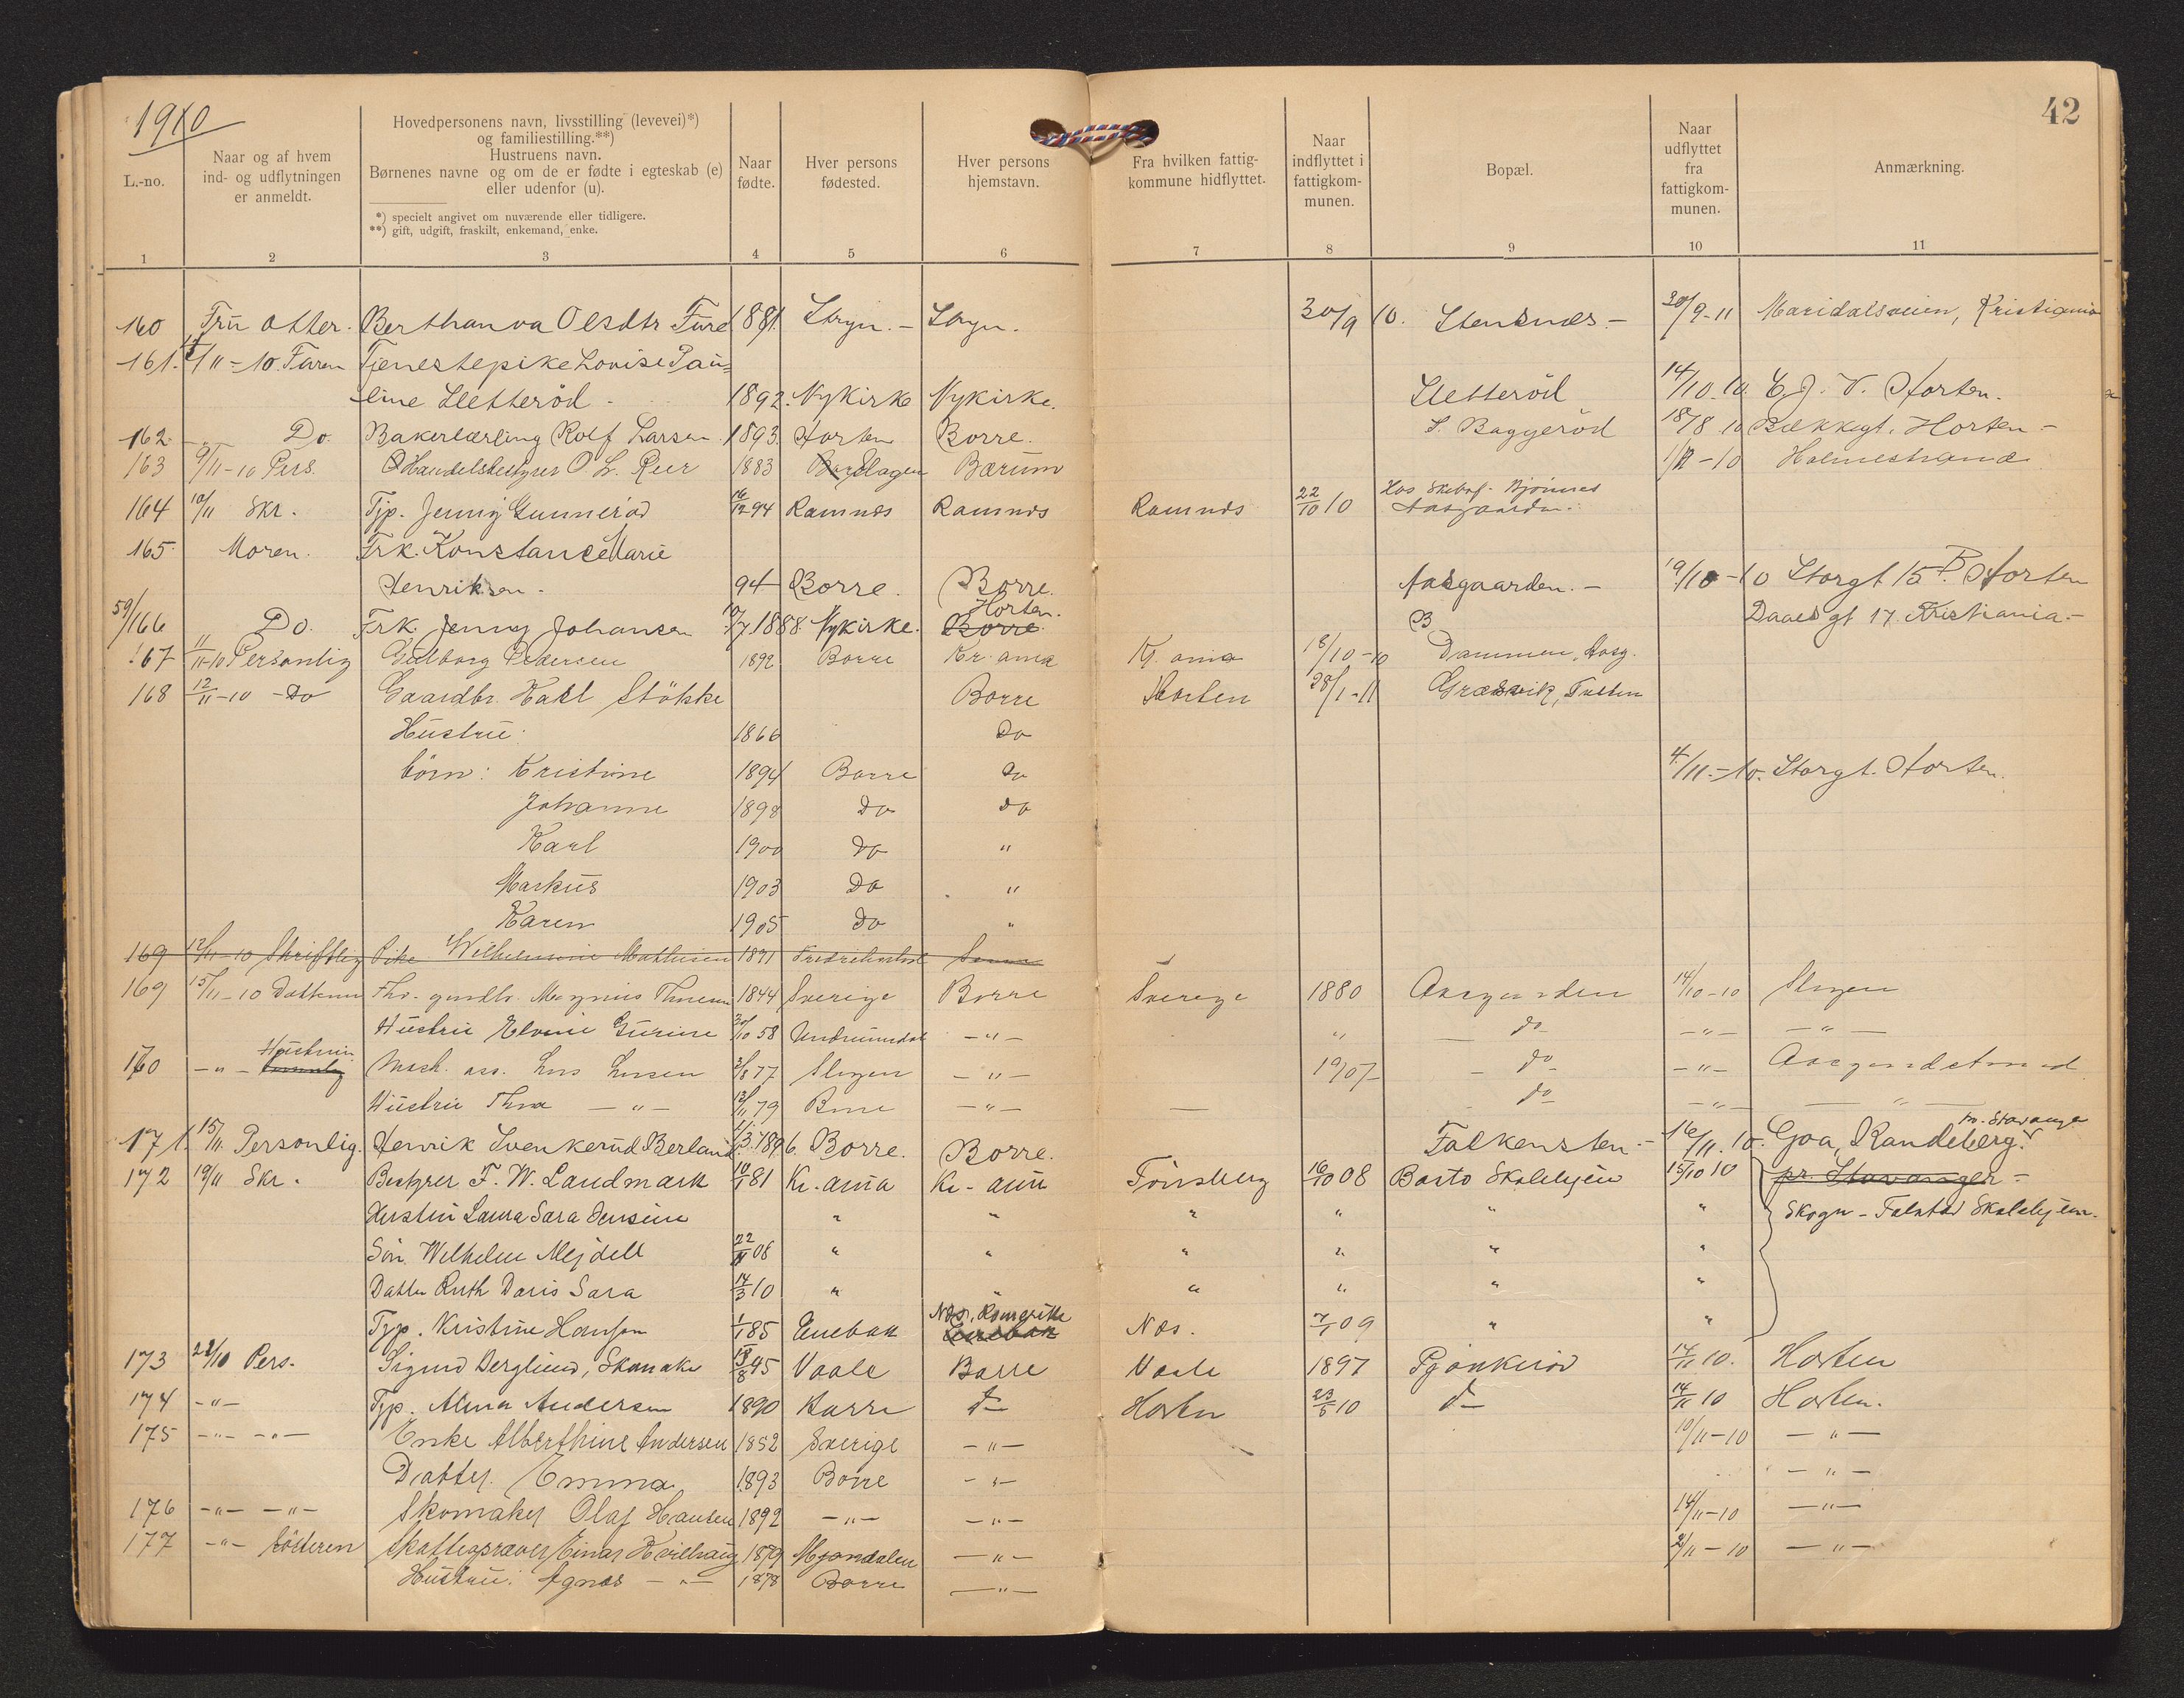 1910
42
L.-no.
Naar og af hvem
ind- og udflytningen
er anmeldt.
Hovedpersonens navn, livsstilling (levevei)*)
og familiestilling.**)
Hustruens navn.
Børnenes navne og om de er fødte i egteskab (e)
eller udenfor (u).
*) specielt angivet om nuværende eller tidligere.
**) gift, udgift, fraskilt, enkemand, enke.
Naar
fødte.
Hver persons
fødested.
Hver persons
hjemstavn.
Fra hvilken fattig-
kommune hidflyttet.
Naar
indflyttet i
fattigkom-
munen.
Bopæl.
Naar
udflyttet
fra
fattigkom-
munen.
Anmærkning.
1 2 3 4 5 6 7 8 9 10 11
160 Fru Otter. Berthanna Olsdtr Fure 1881. Stryn. - Stryn. 30/9 10. Stensnæs. - 30/9-11 Maridalsveien, Kristiania
161. /11-10. Faren Tjenestepike Lovise Pau=
line Sletteröd - 1892. Nykirke Nykirke. Sletteröd 14/10.10. Horten.
162. Do. Bakerlærling Rolf Larsen 1893 Horten Borre. S. Baggeröd 18/8 10 Bækkegt. Horten -
163 9/11-10 Pers. Handelsbestyrer O. L. Reer 1883 Slagen Bærum -10 Holmestrand
164 10/11 Skr. Tjp. Jenny Gunneröd 16/12 94 Ramnæs Ramnæs Ramnæs 22/10 10 Hos Bjönnes
Aasgaarden.
165 Moren. Frk. Konstance Marie
Henriksen. 94 Borre. Borre. Aasgaarden. - 19/10-10 Storgt 15B. Horten
Horten.
59/166 Do. Frk. Jenny Johansen 10/7.1888. Nykirke. Borre. Daaes gt 17 Kristiania. -
167 11/11-10 Personlig Gulborg Pedersen 1892 Borre Kr. ania Kr. ania 18/10-10 Dammen, Aasg.
168 12/11-10 - Do Gaardbr. Karl Stökke Borre Horten 28/1-11 Græsvik,
Hustru: 1866 Do
börn: Kristine 1894 Borre Do 4/11.-10. Storgt. Horten.
Johanne 1898 Do Do
Karl 1900 Do "
Markus 1903 Do "
Karen 1905 Do "
169 12/11-10 Skriftlig Pike Wilhelmine Mathisen 1891
169 15/11-10 Datteren Fhv. gaardbr. Magnus 1844 Sverige Borre Sverige 1880 Aasgaarden 14/10-10 Slagen
Hustru Gurine 30/10 58 Undrumsdal -"- " do -"- -"-
Hustruen
170 -"- Mask. ass. Lars Larsen 3/8 77 Slagen -"- 1907 do -"- Aasgaardstrand
Hustru Thea -"- 13/11 79 Borre -"- do -"- -"-
171. 15/11 Personlig. Henrik Svenkerud Berland 3.1896. Borre. Borre. Falkensten. - 16/11.10. Goa, Randeberg
pr. Stavanger
172 19/11 Skr. Bestyrer F. W. Landmark 10/1 81 Kr.-ania Kr-ania Tönsberg 16/10 08 Bastö Skolehjem 15/10 10 pr. Stavanger -
Hustru Laura Sara Jensine " " " " " " Skogn - Falstad Skolehjem.
Sön Wilhelm Mejdell 22/11 08 " " " " " "
Datter Ruth Doris Sara 14/3 10 " " " " " "
Næs, Romerike
Tjp. Kristine Hansen 1/1 85 Enebak Enebak Næs. 7/1 09 " "
173 22/10 Pers. Sigurd Berglund, Skomaker 18/8 95 Vaale Borre Vaale 1897 Pjönkeröd 14/11 10. Horten
174 -"- Tjp. Alma Andersen 1890 Borre do Horten 23/5 10 do 14/11 10 Horten.
175 -"- -"- Enke Alberthine Andersen 1852 Sverige -"- 10/11-10 -"-
Datter. Emma 1893 Borre -"- -"-
176 -"- -"- Skomaker Olaf Hansen 1892 -"- -"- 14/11-10 -"-
177 -"- SöSteren Skatteopkræver Einar Kvilhaug 1879 Mjøndalen -"- /11-10 -"-
Hustru: Agnes -"- 1878 Borre -"-